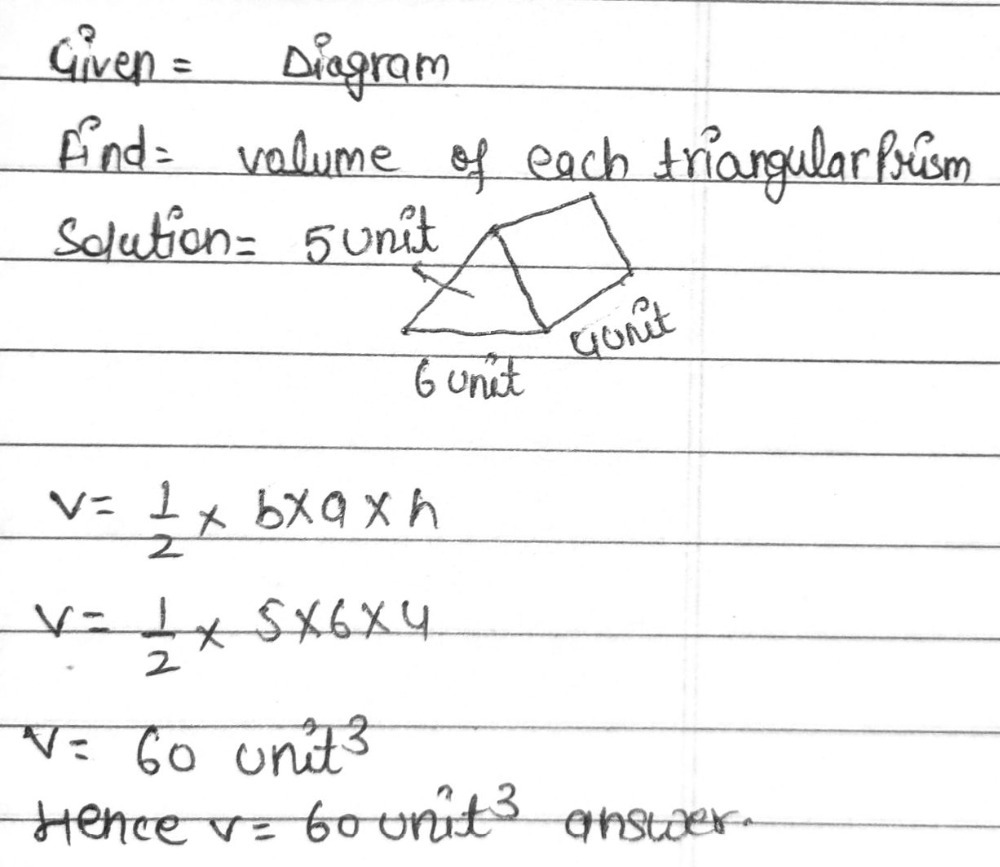 Given = Diagram
Find = volume of each triangular Prism
Solution = 5 unit
4 unit
6 unit
V = 1/2 × b × a × h
V = 1/2 × 5 × 6 × 4
V = 60 unit³
Hence v = 60 unit³ answer.